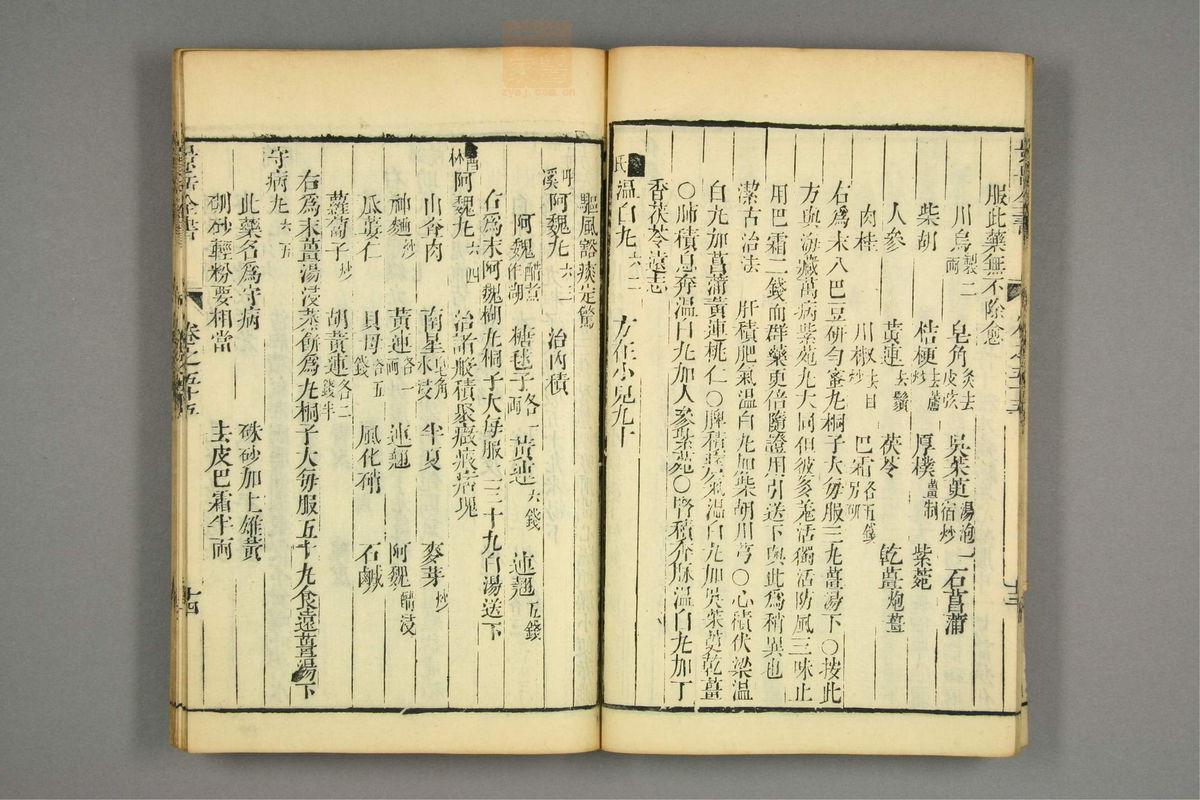 服此藥無不除愈
川烏製二兩 皂角炙去皮弦 吳茱萸湯泡宿炒 石菖蒲
柴胡 桔梗去蘆炒 厚樸薑制 紫菀
人參 黃連去鬚 茯苓 乾薑炮薑
肉桂 川椒去目炒 巴霜另研各五錢
右為末入巴豆研勻蜜丸桐子大每服三丸薑湯下○按此
方與海藏萬病紫菀丸大同但彼多羌活獨活防風三味止
用巴霜二錢而群藥更倍隨證用引送下與此為稍異也
潔古治法 肝積肥氣溫白丸加柴胡川芎○心積伏梁溫
白丸加菖蒲黃連桃仁○脾積痞氣溫白丸加吳茱萸乾薑
○肺積息奔溫白丸加人參紫菀○腎積奔豚溫白丸加丁
香茯苓遠志
氏溫白丸六二 方在小兒九十
驅風豁痰定驚
溪阿魏丸六三 治肉積
阿魏醋煮作糊 糖毬子各一兩 黃連六錢 連翹五錢
右為末阿魏糊丸桐子大每服二三十丸白湯送下
醫林阿魏丸六四 治諸般積聚癥瘕痞塊
山查肉 南星皂角水浸 半夏 麥芽炒
神麯炒 黃連各一兩 連翹 阿魏醋浸
瓜蔞仁 貝母各五錢 風化硝 石鹹
蘿蔔子炒 胡黃連各二錢半
右為末薑湯浸蒸餅為丸桐子大每服五十丸食遠薑湯下
守病丸六五
此藥名為守病 硃砂加上雄黃
硼砂輕粉要相當 去皮巴霜半兩
景岳全書 卷之五十五 十四
zysj.com.cn